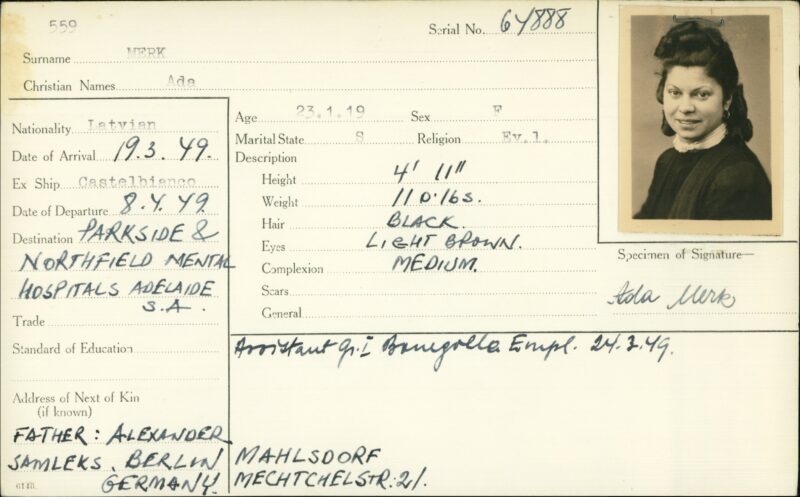 559
Serial No. 64888
Surname MERK
Christian Names Ada
Nationality Latvian
Date of Arrival 19.3.49.
Ex Ship Castelbianco
Date of Departure 8.4.49
Destination PARKSIDE &
NORTHFIELD MENTAL
HOSPITALS ADELAIDE
S.A.
Trade
Standard of Education
Address of Next of Kin
(if known)
FATHER: ALEXANDER
SAMLEKS. BERLIN
GERMANY.
Age 23.1.19 Sex F
Marital State S Religion Ev.l.
Description
Height 4' 11"
Weight 110 lbs.
Hair BLACK.
Eyes LIGHT BROWN.
Complexion MEDIUM.
Scars
General
Specimen of Signature—
Ada Merk
Assistant Gr.I Bonegolla Empl. 24.3.49.
MAHLSDORF
MECHTCHELSTR: 21.